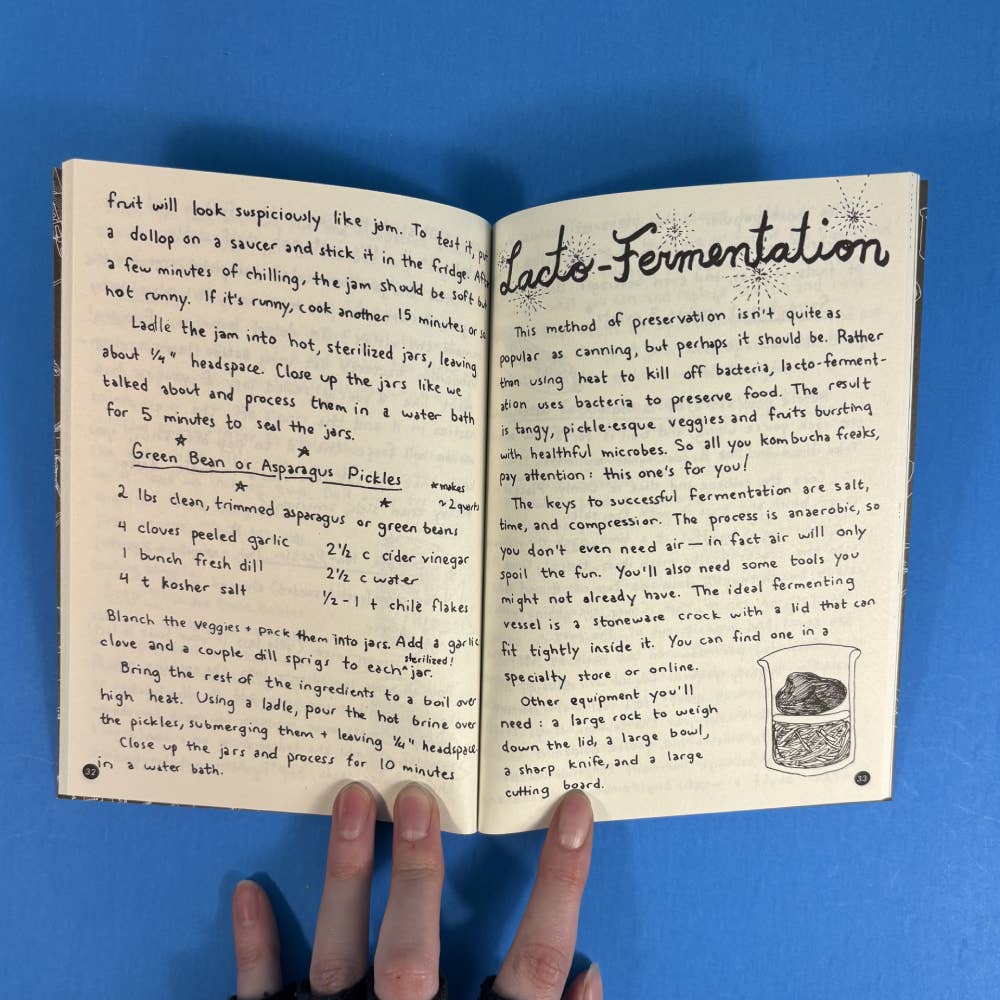 fruit will look suspiciously like jam. To test it, put
a dollop on a saucer and stick it in the fridge. After
a few minutes of chilling, the jam should be soft but
not runny. If it's runny, cook another 15 minutes or so.
Ladle the jam into hot, sterilized jars, leaving
about 1/4" headspace. Close up the jars like we
talked about and process them in a water bath
for 5 minutes to seal the jars.
Green Bean or Asparagus Pickles
*makes
~2 quarts
2 lbs clean, trimmed asparagus or green beans
4 cloves peeled garlic
1 bunch fresh dill
4 t kosher salt
2 1/2 c cider vinegar
2 1/2 c water
1/2 - 1 t chile flakes
Blanch the veggies + pack them into jars. Add a garlic
clove and a couple dill sprigs to each ^sterilized! jar.
Bring the rest of the ingredients to a boil over
high heat. Using a ladle, pour the hot brine over
the pickles, submerging them + leaving 1/4" headspace.
Close up the jars and process for 10 minutes
in a water bath.
32
Lacto-Fermentation
This method of preservation isn't quite as
popular as canning, but perhaps it should be. Rather
than using heat to kill off bacteria, lacto-ferment-
ation uses bacteria to preserve food. The result
is tangy, pickle-esque veggies and fruits bursting
with healthful microbes. So all you kombucha freaks,
pay attention: this one's for you!
The keys to successful fermentation are salt,
time, and compression. The process is anaerobic, so
you don't even need air — in fact air will only
spoil the fun. You'll also need some tools you
might not already have. The ideal fermenting
vessel is a stoneware crock with a lid that can
fit tightly inside it. You can find one in a
specialty store or online.
Other equipment you'll
need: a large rock to weigh
down the lid, a large bowl,
a sharp knife, and a large
cutting board.
33